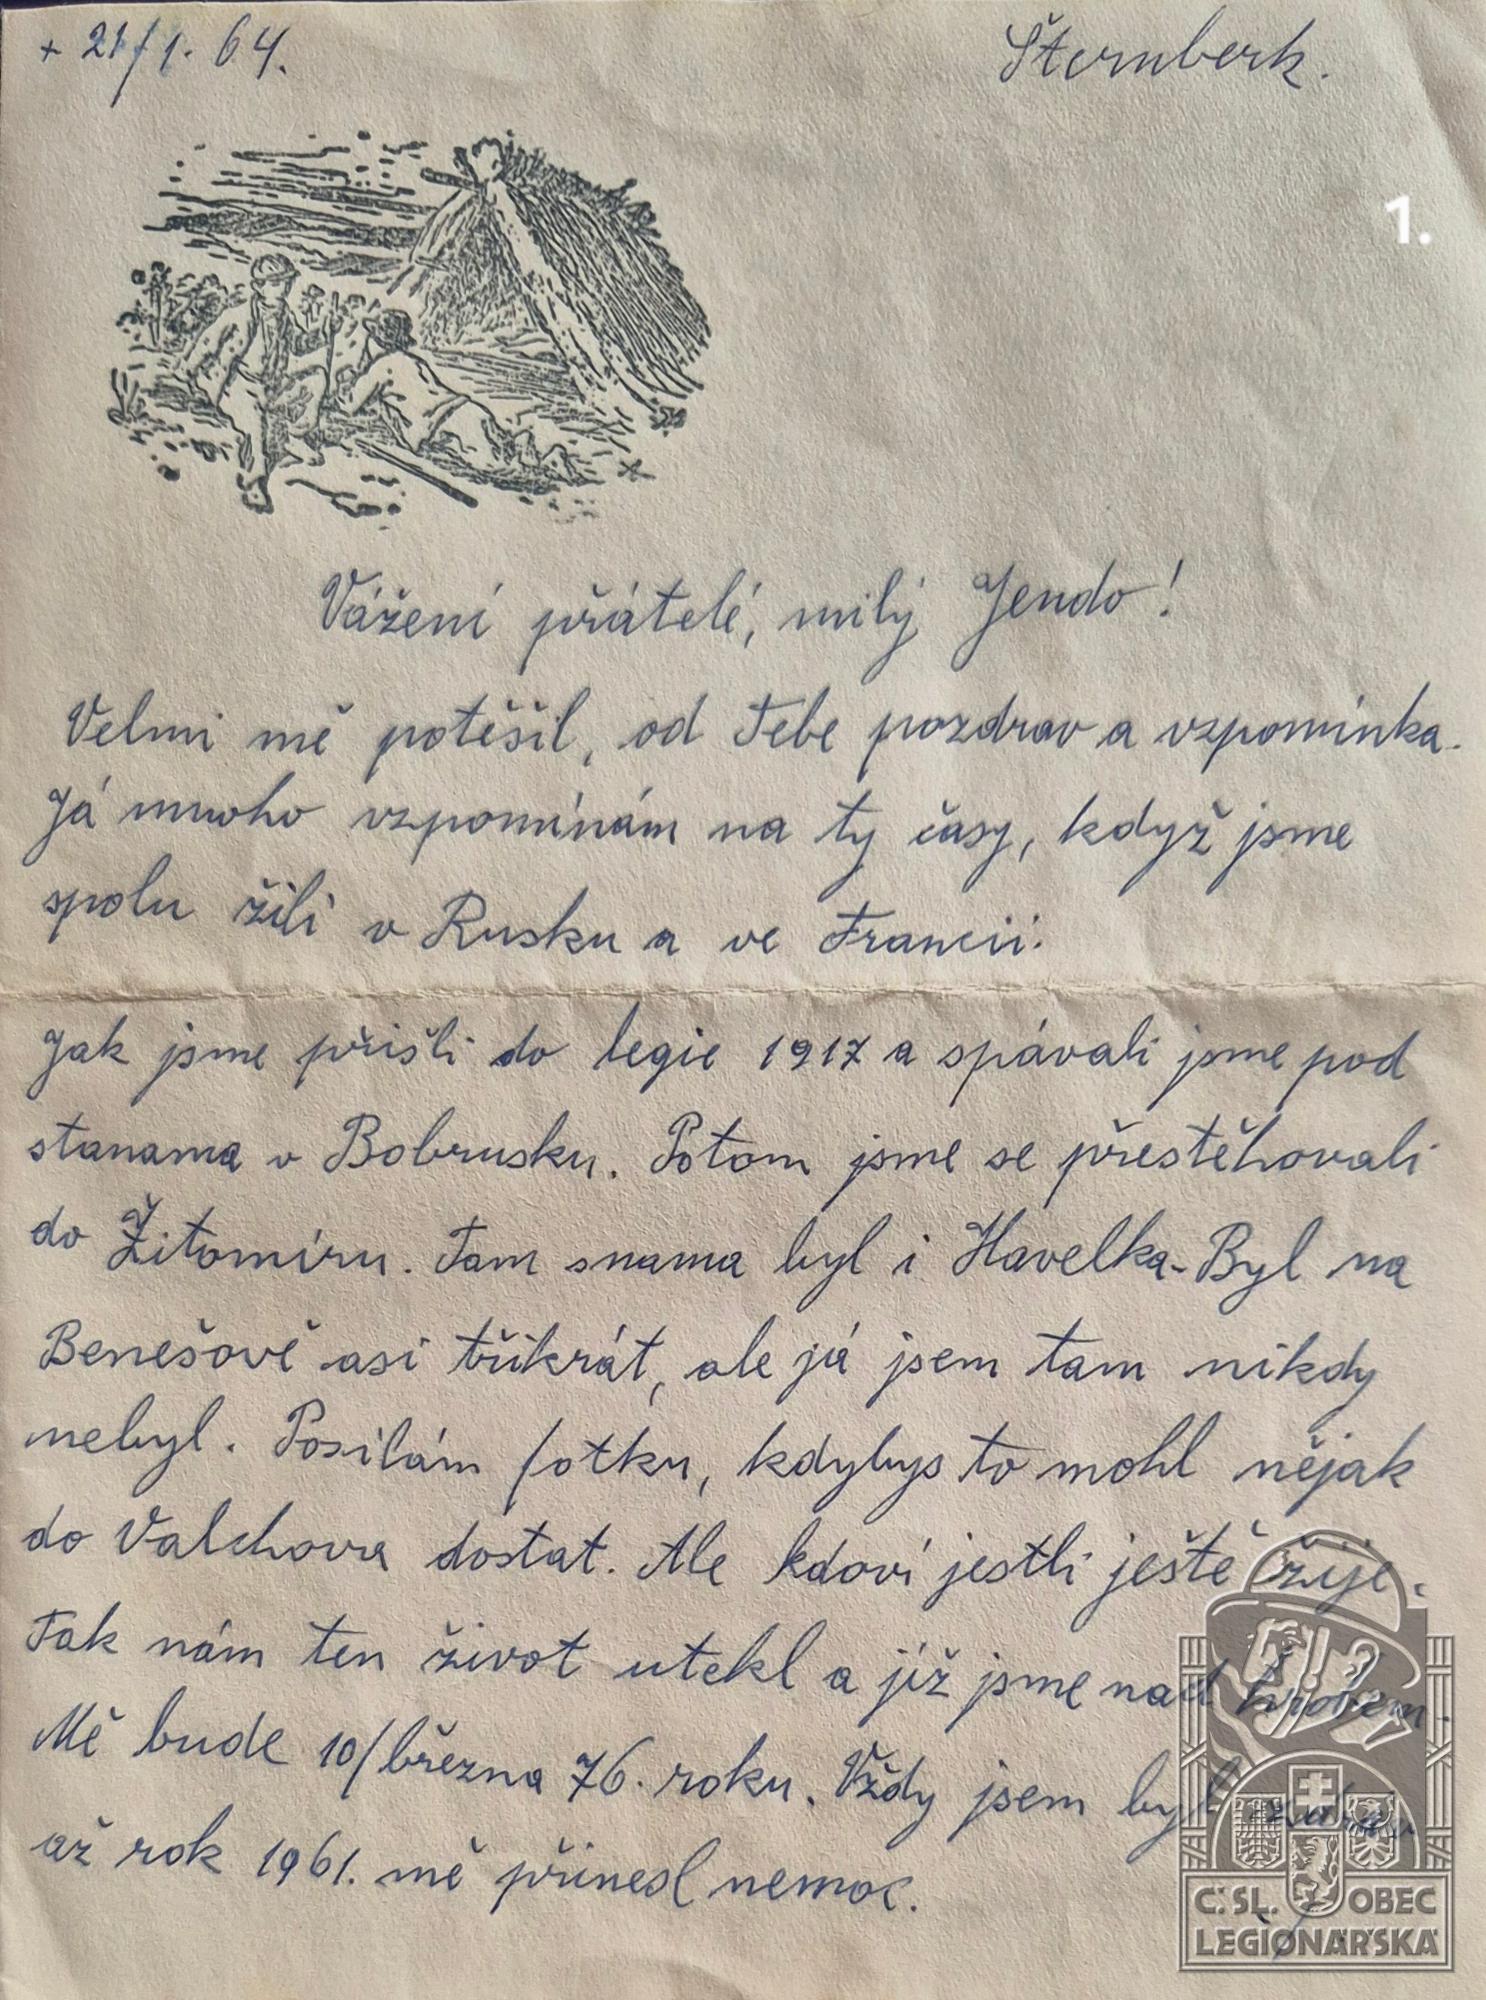 + 21/1. 64.
Šternberk.
1.
Vážení přátelé, milý Jendo!
Velmi mě potěšil, od Tebe pozdrav a vzpomínka.
Já mnoho vzpomínám na ty časy, když jsme
spolu žili v Rusku a ve Francii.
Jak jsme přišli do legie 1917 a spávali jsme pod
stanama v Bobrusku. Potom jsme se přestěhovali
do Žitomíru. Tam snama byl i Havelka-Byl na
Benešově asi třikrát, ale já jsem tam nikdy
nebyl. Posílám fotku, kdybys to mohl nějak
do Valchova dostat. Ale kdoví jestli ještě žije.
Tak nám ten život utekl a již jsme nad hrobem.
Mě bude 10/března 76. roku. Vždy jsem byl zdráv
až rok 1961. mě přinesl nemoc.
Č. SL. OBEC
LEGIONÁŘSKÁ